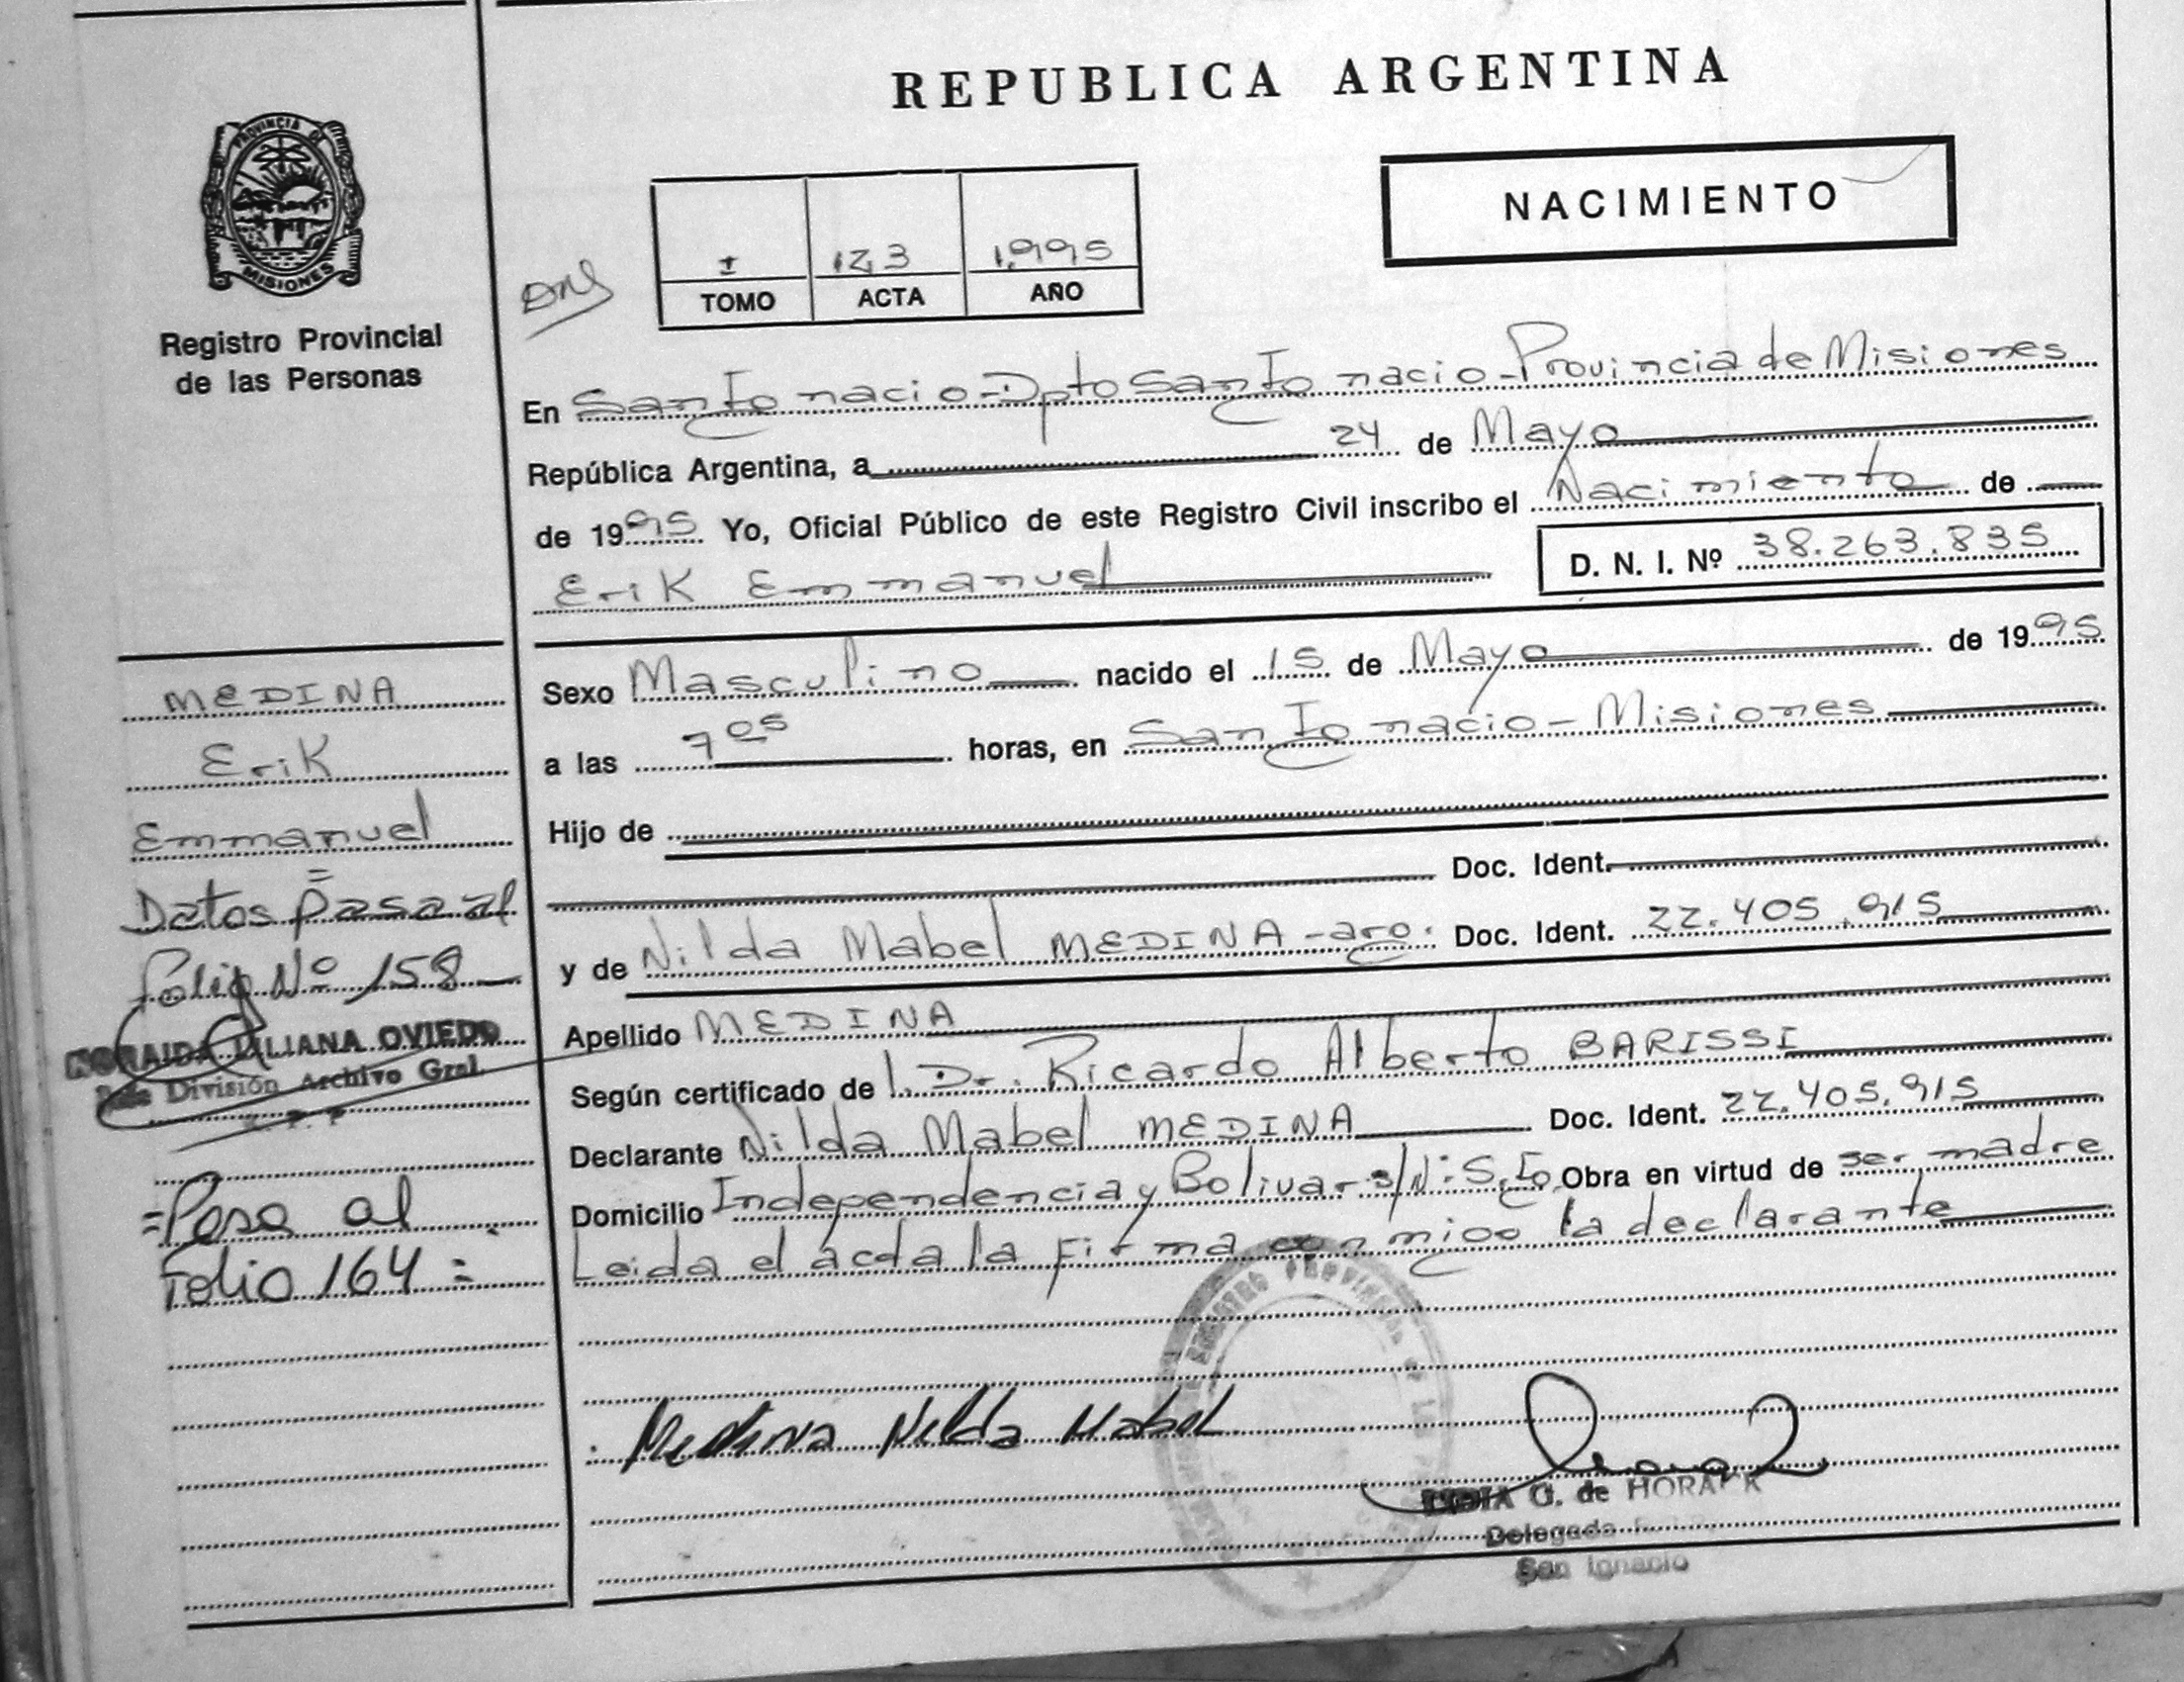 REPUBLICA ARGENTINA
NACIMIENTO
PROVINCIA DE
MISIONES
Registro Provincial
de las Personas
I 123 1.995
TOMO ACTA AÑO
En San Ignacio - Dpto San Ignacio - Provincia de Misiones
República Argentina, a 24 de Mayo
de 1995 Yo, Oficial Público de este Registro Civil inscribo el Nacimiento de
Erik Emmanuel D. N. I. Nº 38.263.835
Sexo Masculino nacido el 15 de Mayo de 1995
a las 7 05 horas, en San Ignacio - Misiones
Hijo de
Doc. Ident.
y de Nilda Mabel MEDINA - arg. Doc. Ident. 22.405.915
Apellido MEDINA
Según certificado de Dr. Ricardo Alberto BARISSI
Declarante Nilda Mabel MEDINA Doc. Ident. 22.405.915
Domicilio Independencia y Bolivar s/Nº S.Ig. Obra en virtud de ser madre
Leida el acda la firma con migo la declarante
Medina Nilda Mabel
LIDIA G. de HORAK
Delegada
San Ignacio
MEDINA
Erik
Emmanuel
=
Datos Pasa al
folio Nº 158
LILIANA OVIEDO
División Archivo Gral.
= Pasa al
Folio 164 =